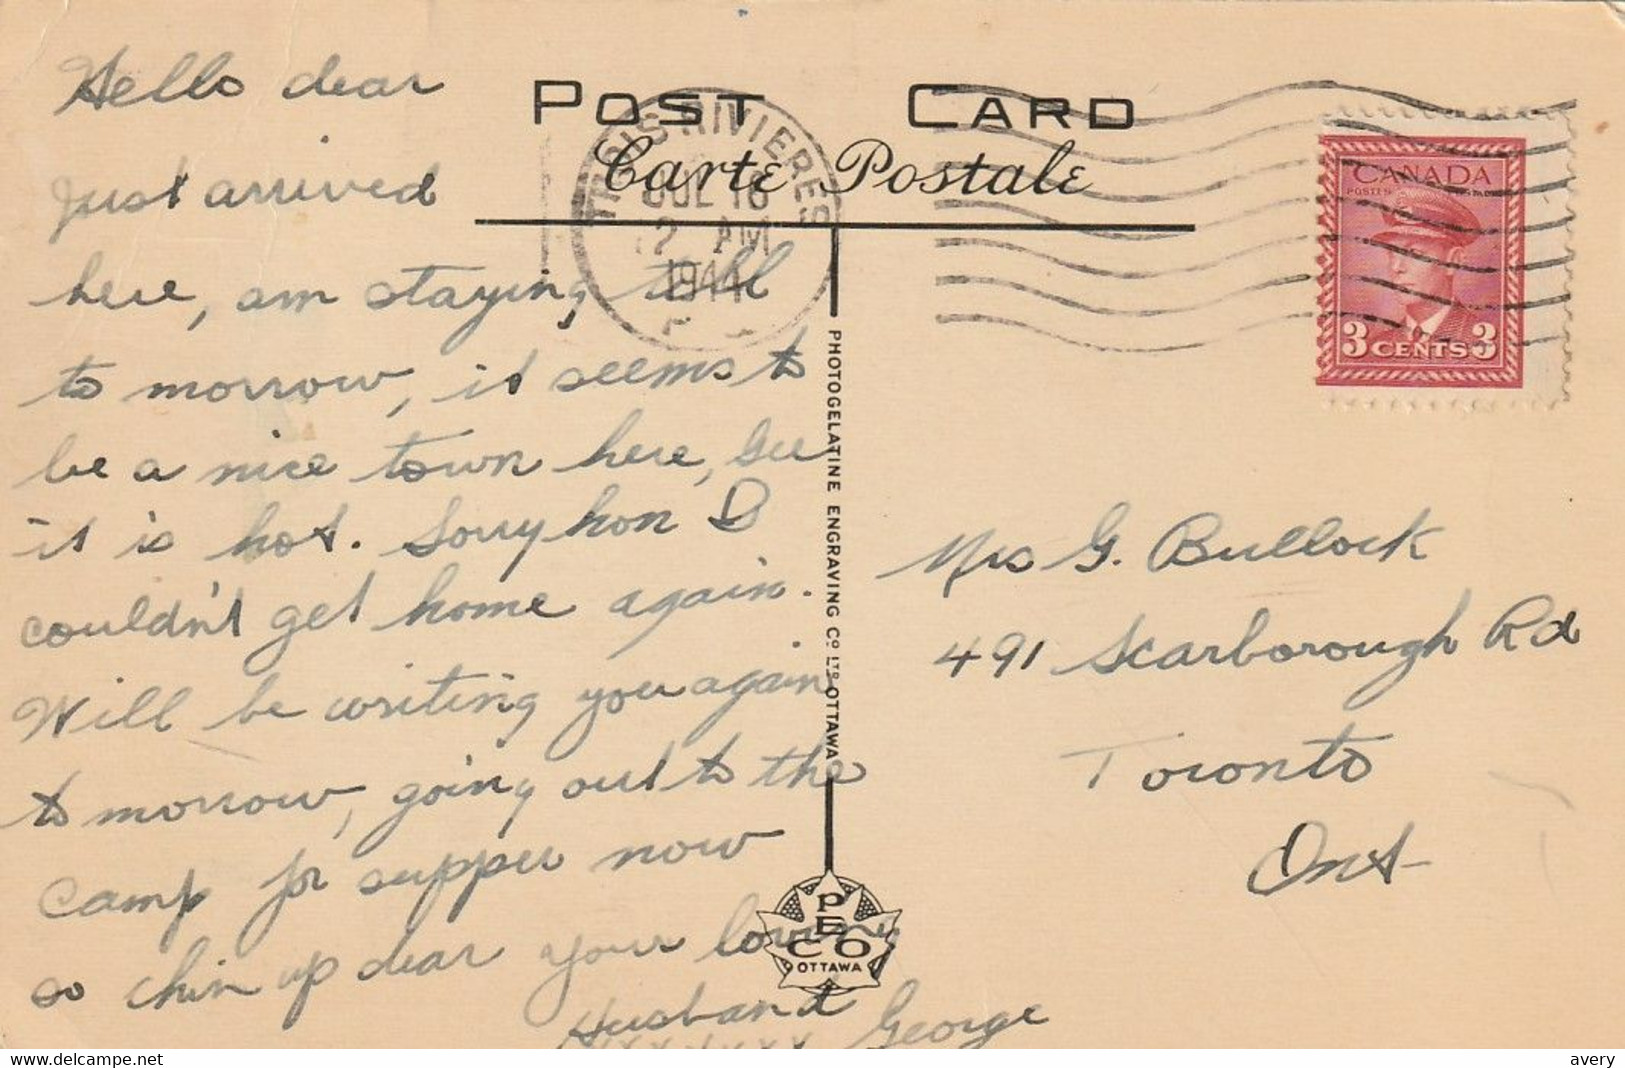 POST CARD
Carte Postale
TROIS RIVIERES
JUL 16
AM
1944
CANADA
POSTES
3 CENTS 3
Hello dear
Just arrived
here, am staying till
to morrow, it seems to
be a nice town here, Gee
it is hot. Sorry hon I
couldn't get home again.
Will be writing you again
to morrow, going out to the
camp for supper now
so chin up dear your loving
Husband George
xxxxxxx
PHOTOGELATINE ENGRAVING CO LTD OTTAWA
PECO
OTTAWA
Mrs G. Bullock
491 Scarborough Rd
Toronto
Ont
delcampe.net
avery